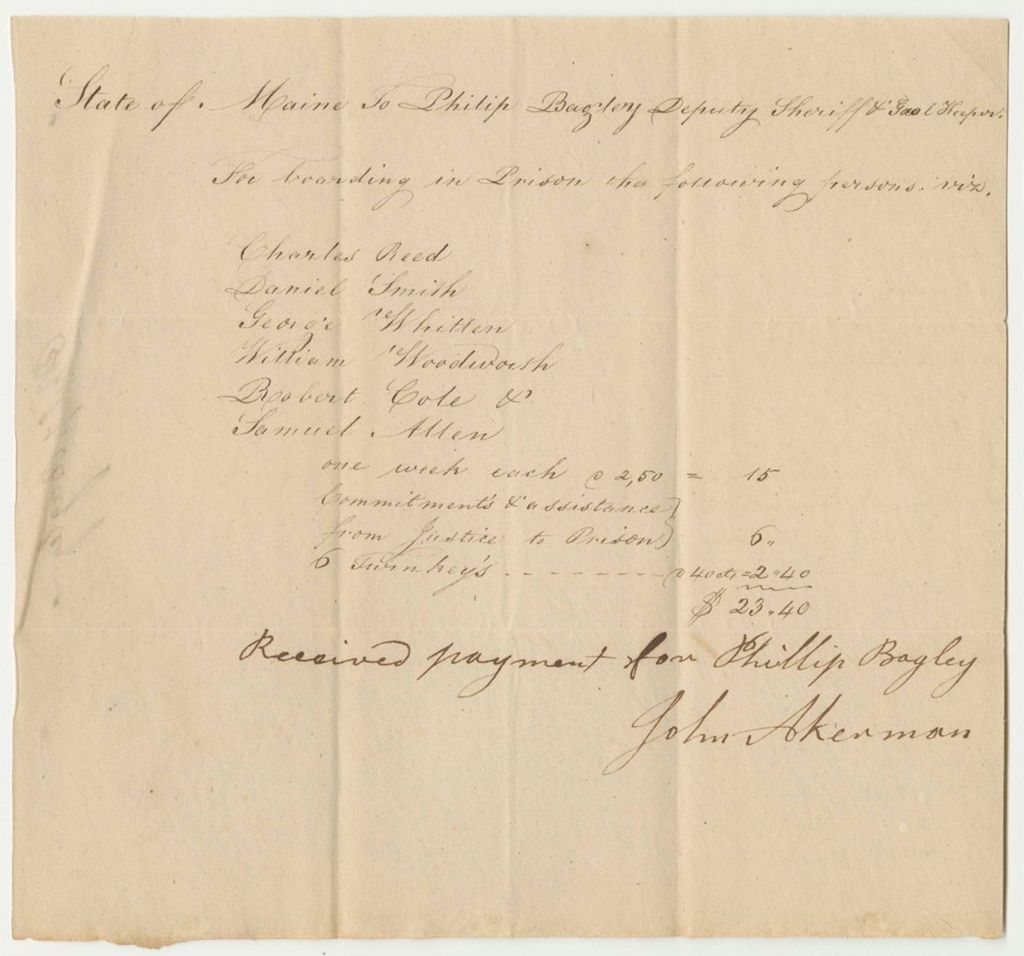 State of Maine To Philip Bagley Deputy Sheriff & Gaol Keeper.
For boarding in Prison the following persons. viz.
Charles Reed
Daniel Smith
George Whitten
William Woodworth
Robert Cole &
Samuel Allen
one week each @ 2,50 = 15
Commitment's & assistance }
from Justice to Prison } 6 "
6 Turnkey's - - - - - - - - @ 40cts = 2 " 40
$ 23 " 40
Received payment for Phillip Bagley
John Akerman